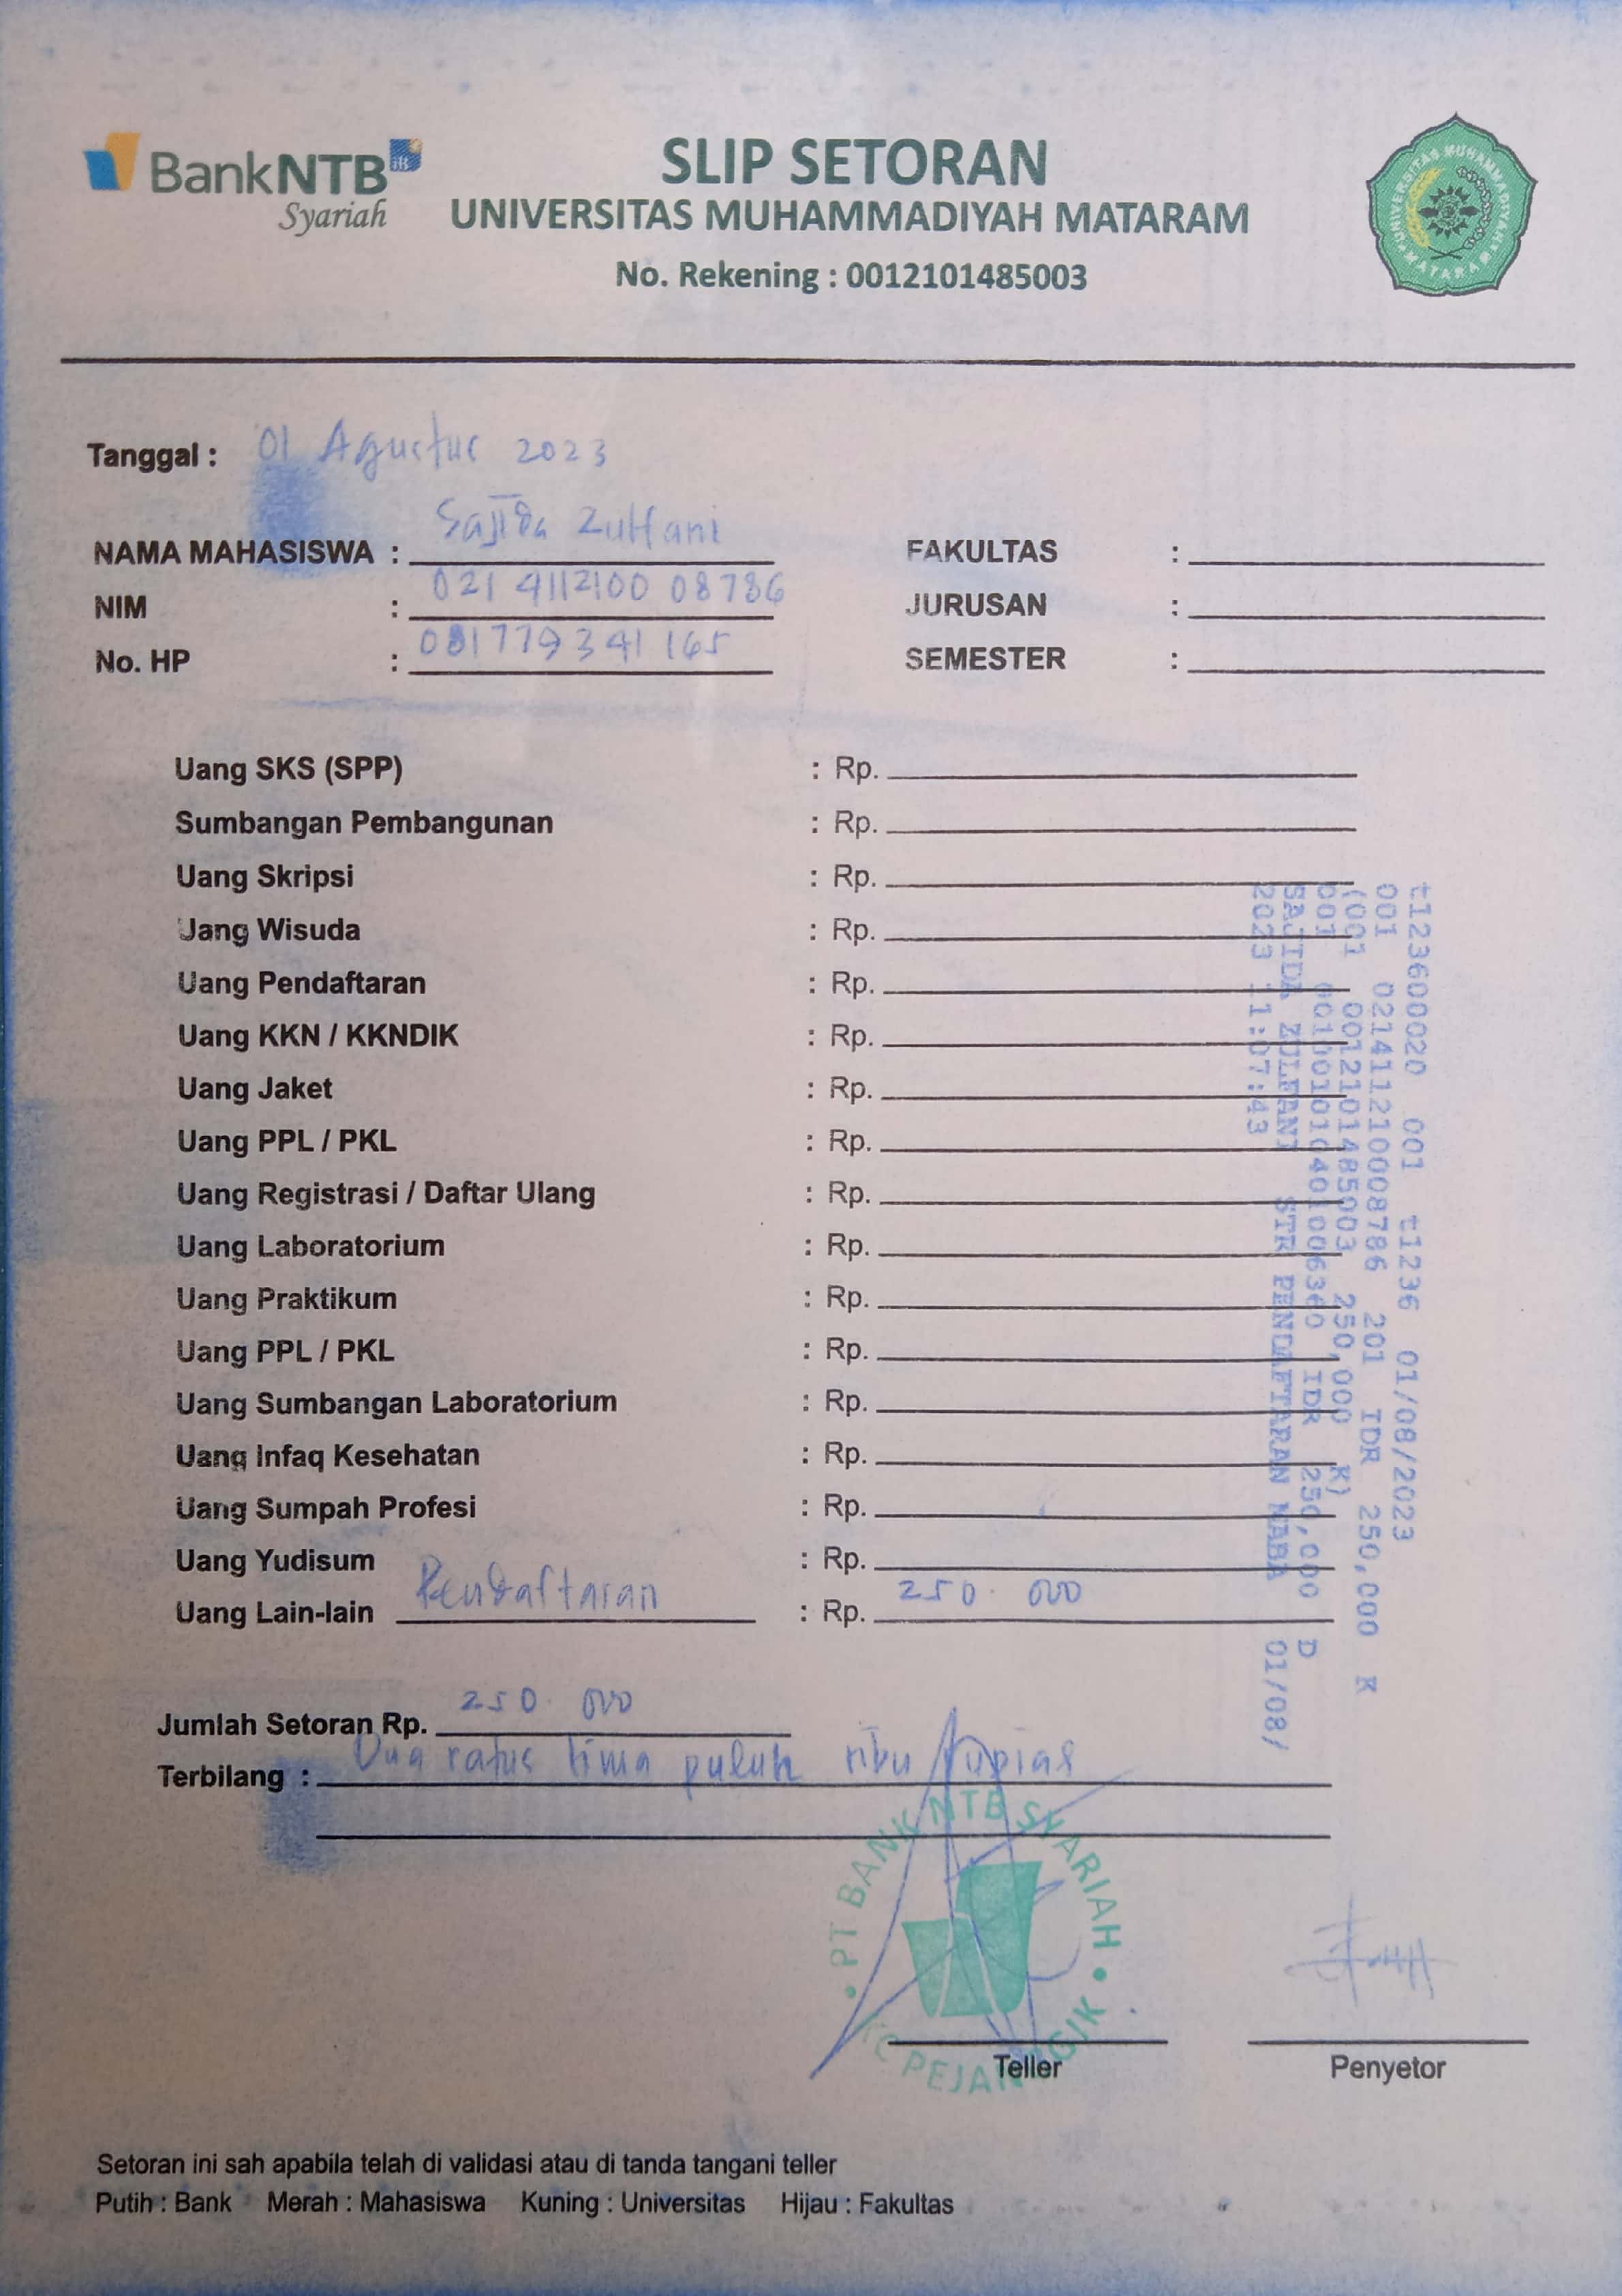 BankNTB
Syariah
SLIP SETORAN
UNIVERSITAS MUHAMMADIYAH MATARAM
No. Rekening : 0012101485003
UNIVERSITAS MUHAMMADIYAH MATARAM
Tanggal : 01 Agustus 2023
NAMA MAHASISWA : Sajida Zulfani
NIM : 021 4112100 08786
No. HP : 081779341165
FAKULTAS :
JURUSAN :
SEMESTER :
Uang SKS (SPP) : Rp.
Sumbangan Pembangunan : Rp.
Uang Skripsi : Rp.
Uang Wisuda : Rp.
Uang Pendaftaran : Rp.
Uang KKN / KKNDIK : Rp.
Uang Jaket : Rp.
Uang PPL / PKL : Rp.
Uang Registrasi / Daftar Ulang : Rp.
Uang Laboratorium : Rp.
Uang Praktikum : Rp.
Uang PPL / PKL : Rp.
Uang Sumbangan Laboratorium : Rp.
Uang Infaq Kesehatan : Rp.
Uang Sumpah Profesi : Rp.
Uang Yudisum : Rp.
Uang Lain-lain Pendaftaran : Rp. 250.000
t123600020 001 t1236 01/08/2023
001 021411210008786 201 IDR 250,000 K
(001 0012101485003 250,000 K)
001 IDR 250,000 D
SAJIDA ZULFANI STR PENDAFTARAN MABA 01/08/
2023 11:07:43
Jumlah Setoran Rp. 250.000
Terbilang : Dua ratus lima puluh ribu rupiah
PT BANK NTB SYARIAH
KC PEJANGGIK
Teller
Penyetor
Setoran ini sah apabila telah di validasi atau di tanda tangani teller
Putih : Bank Merah : Mahasiswa Kuning : Universitas Hijau : Fakultas